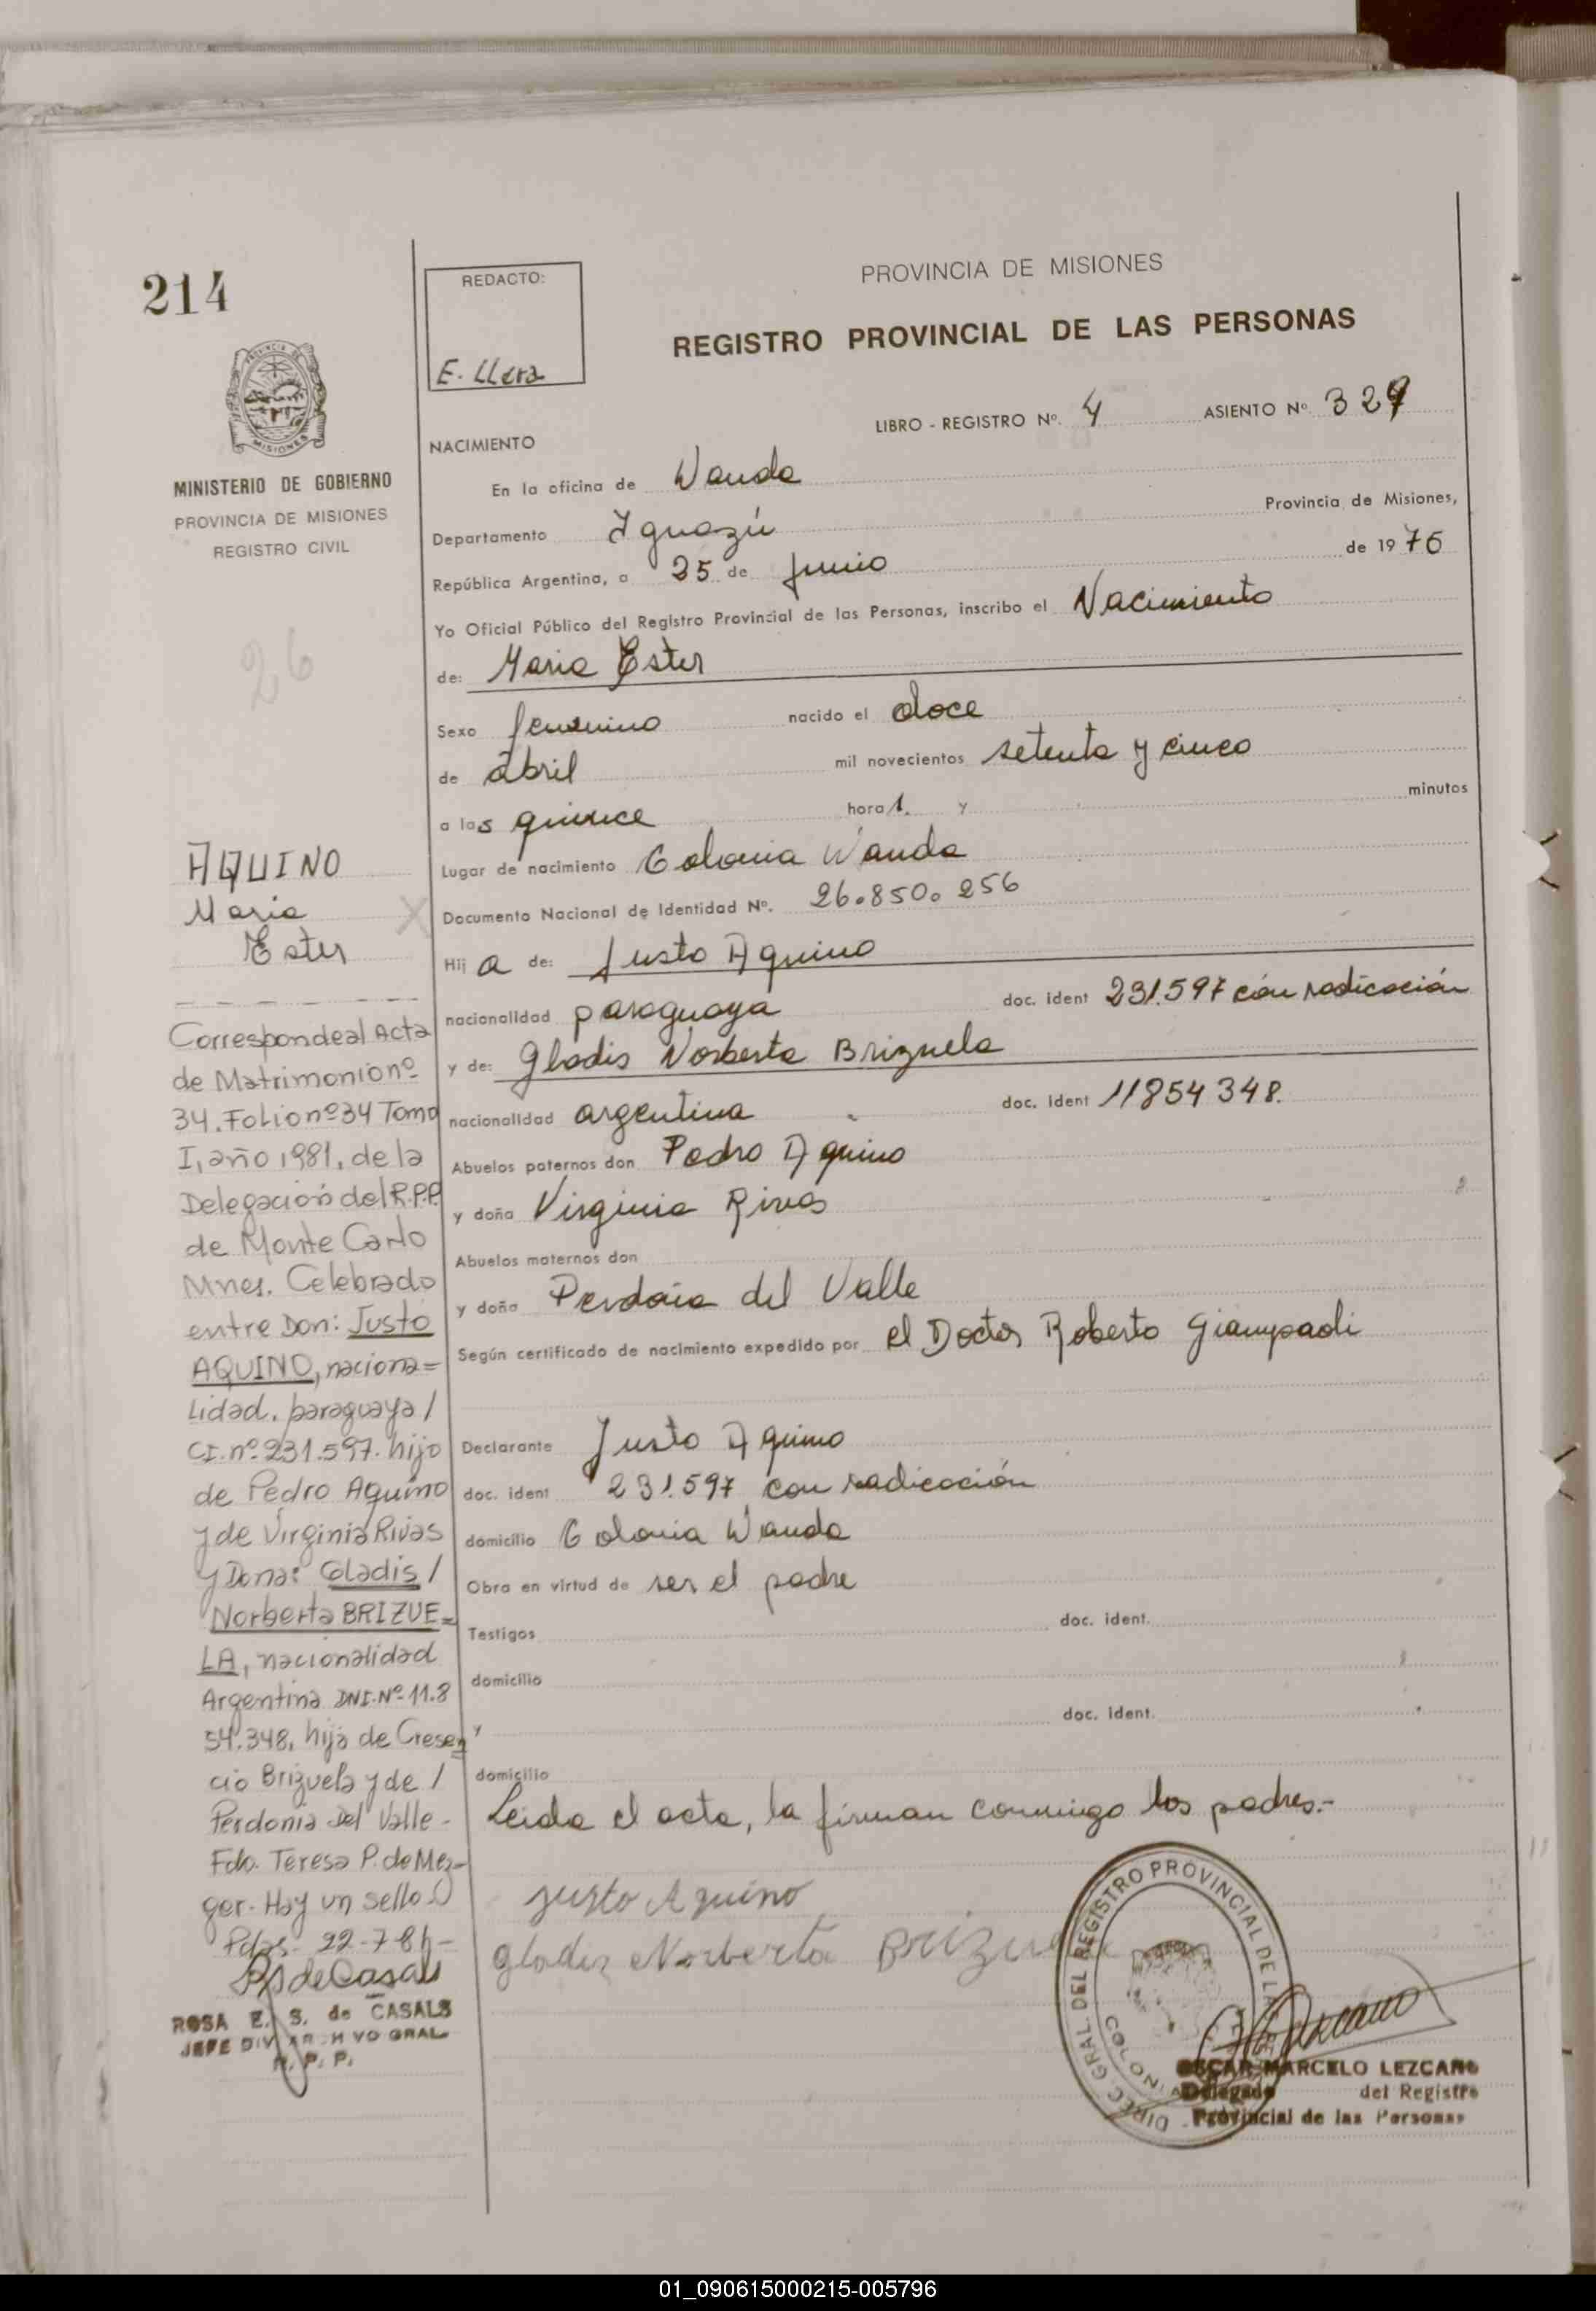 214
REDACTO:
E. LLera
PROVINCIA DE MISIONES
REGISTRO PROVINCIAL DE LAS PERSONAS
LIBRO - REGISTRO Nº. 4 ASIENTO Nº. 329
MINISTERIO DE GOBIERNO
PROVINCIA DE MISIONES
REGISTRO CIVIL
26
NACIMIENTO
En la oficina de Wanda
Departamento Iguazú Provincia de Misiones,
República Argentina, a 25 de junio de 1976
Yo Oficial Público del Registro Provincial de las Personas, inscribo el Nacimiento
de: Maria Ester
Sexo femenino nacido el doce
de abril mil novecientos setenta y cinco
a las quince hora 1. y minutos
Lugar de nacimiento Colonia Wanda
Documento Nacional de Identidad Nº. 26.850.256
Hij a de: Justo Aquino
nacionalidad paraguaya doc. ident 231.597 con radicación
y de: Gladis Norberta Brizuela
nacionalidad argentina doc. ident 11854348.
Abuelos paternos don Pedro Aquino
y doña Virginia Rivas
Abuelos maternos don
y doña Perdonia del Valle
Según certificado de nacimiento expedido por el Doctor Roberto Giampaoli
Declarante Justo Aquino
doc. ident 231.597 con radicación
domicilio Colonia Wanda
Obra en virtud de ser el padre
Testigos doc. ident.
domicilio
y doc. ident.
domicilio
Leida el acta, la firman conmigo los padres.-
Justo Aquino
Gladis Norberta Brizuela
AQUINO
Maria
Ester
Corresponde al Acta
de Matrimonio nº
34. Folio nº 34 Tomo
I, año 1981, de la
Delegación del R.P.P.
de Monte Carlo
Mnes. Celebrado
entre Don: Justo
AQUINO, naciona=
lidad. paraguaya /
CI. nº 231.597. hijo
de Pedro Aquino
y de Virginia Rivas
y Dona: Gladis /
Norberta BRIZUE=
LA, nacionalidad
Argentina DNI. Nº 11.8
54.348, hija de Cresen
cio Brizuela y de /
Perdonia del Valle -
Fdo. Teresa P. de Mez-
ger. Hay un sello.
Pdas. 22-7-81-
ROSA E. S. de CASALS
JEFE DIV ARCHIVO GRAL.
R. P. P.
DIREC. GRAL. DEL REGISTRO PROVINCIAL DE LAS
COLONIA
OSCAR MARCELO LEZCANO
Delegado del Registro
Provincial de las Personas
01_090615000215-005796